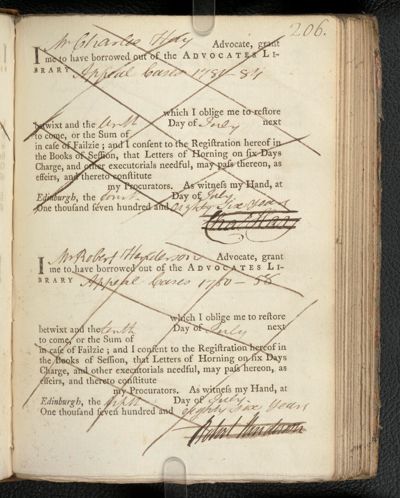 206.
I Mr Charles Hay Advocate, grant
me to have borrowed out of the ADVOCATES LI-
BRARY Appeal Cases 1780-84
which I oblige me to reſtore
betwixt and the tenth Day of July next
to come, or the Sum of
in caſe of Failzie; and I conſent to the Regiſtration hereof in
the Books of Seſſion, that Letters of Horning on ſix Days
Charge, and other executorials needful, may paſs thereon, as
effeirs, and thereto conſtitute
my Procurators. As witneſs my Hand, at
Edinburgh, the fourth Day of July
One thouſand ſeven hundred and eighty Six years
Chas Hay
I Mr Robert Henderson Advocate, grant
me to have borrowed out of the ADVOCATES LI-
BRARY Appeal Cases 1750-58
which I oblige me to reſtore
betwixt and the tenth Day of July next
to come, or the Sum of
in caſe of Failzie; and I conſent to the Regiſtration hereof in
the Books of Seſſion, that Letters of Horning on ſix Days
Charge, and other executorials needful, may paſs hereon, as
effeirs, and thereto conſtitute
my Procurators. As witneſs my Hand, at
Edinburgh, the fifth Day of July
One thouſand ſeven hundred and eighty Six years
Robert Henderson